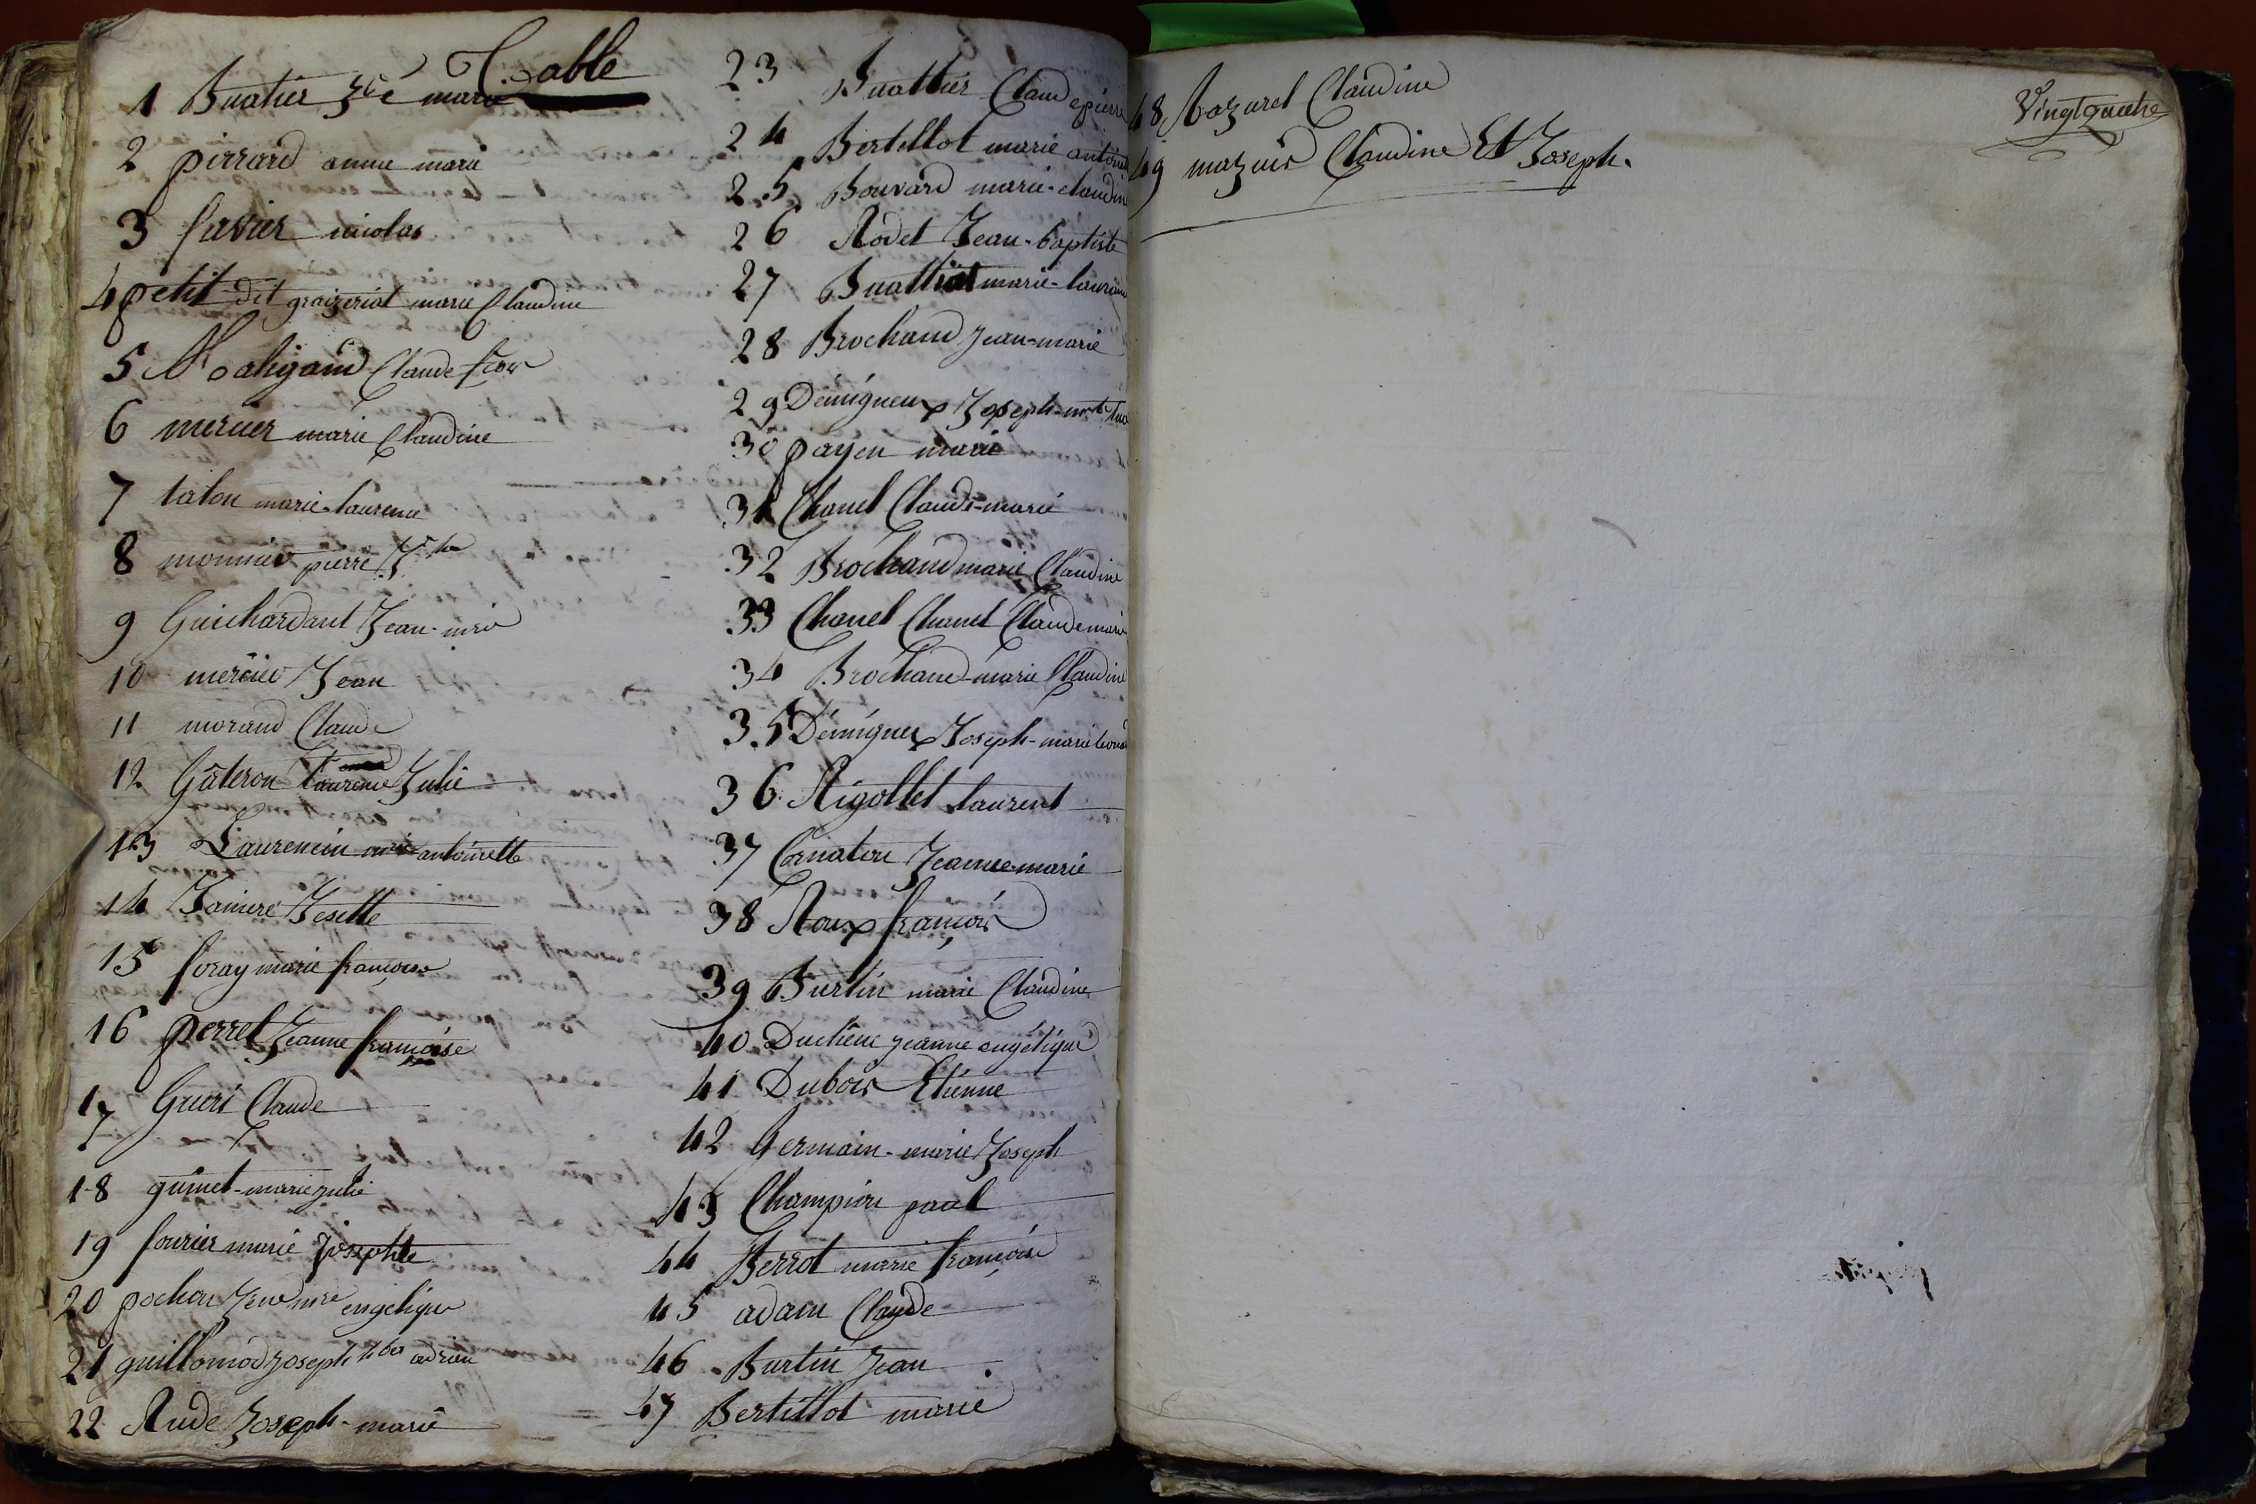 Table
1 Buatier Jh marie
2 pirrard anne marie
3 favier nicolas
4 petit dit graizeriat marie Claudine
5 Claude fcois
6 mercier marie Claudine
7 talon marie-laurence
8 monnier pierre
9 Guichardant Jean-mie
10 mercier Jean
11 morand Claude
12 Gâteron Laurence Julie
13 Laurencin mie antoinette
14 Janiere Josette
15 foray marie françoise
16 perret Jeanne françoise
17 Guéri Claude
18 guinet-marie julie
19 fourier marie Josephte
20 pochon mie engelique
21 guillomod joseph adrien
22 Rude Joseph-marie
23 Buattier Claude pierre
24 Bertillot marie
25 Bouvard marie-claudin
26 Rodet Jean-baptiste
27 marie-
28 Brochand jean-marie
29 Démigneux Joseph-
30 payen marie
31 Chanel Claude-marie
32 Brochand marie Claudine
33 Chanel Chanel Claude marie
34 Brochand-marie Claudine
35 Démigneux Joseph-marie
36 Rigollet laurent
37 Cornaton Jeanne-marie
38 Roux françois
39 Burtin marie Claudine
40 Duchêne jeanne angélique
41 Dubois Etienne
42 germain-marie Joseph
43 Champion paul
44 Perrot marie françoise
45 adam Claude
46 Burtin Jean
47 Bertillot marie
48 Mazuret Claudine
49 mazuir Claudine Et Joseph.
Vingt quatre